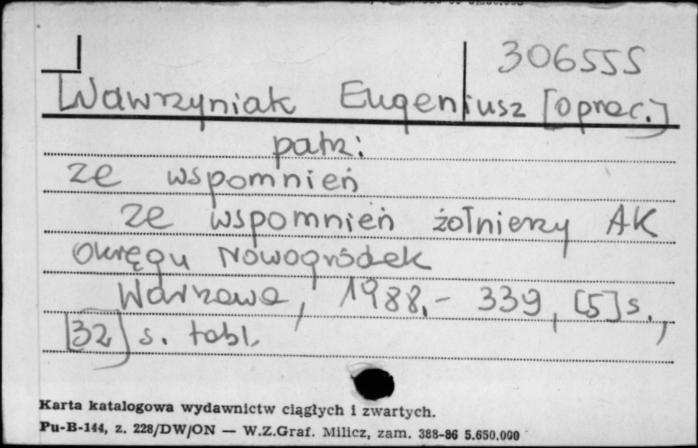 306555
Wawrzyniak Eugeniusz [oprac.]
patrz:
ze wspomnień
ze wspomnień żołnierzy AK
Okręgu Nowogródek
Warszawa, 1988.- 339, [5] s.,
[32] s. tabl.
Karta katalogowa wydawnictw ciągłych i zwartych.
Pu-B-144, z. 228/DW/ON — W.Z.Graf. Milicz, zam. 388-86 5.650.000